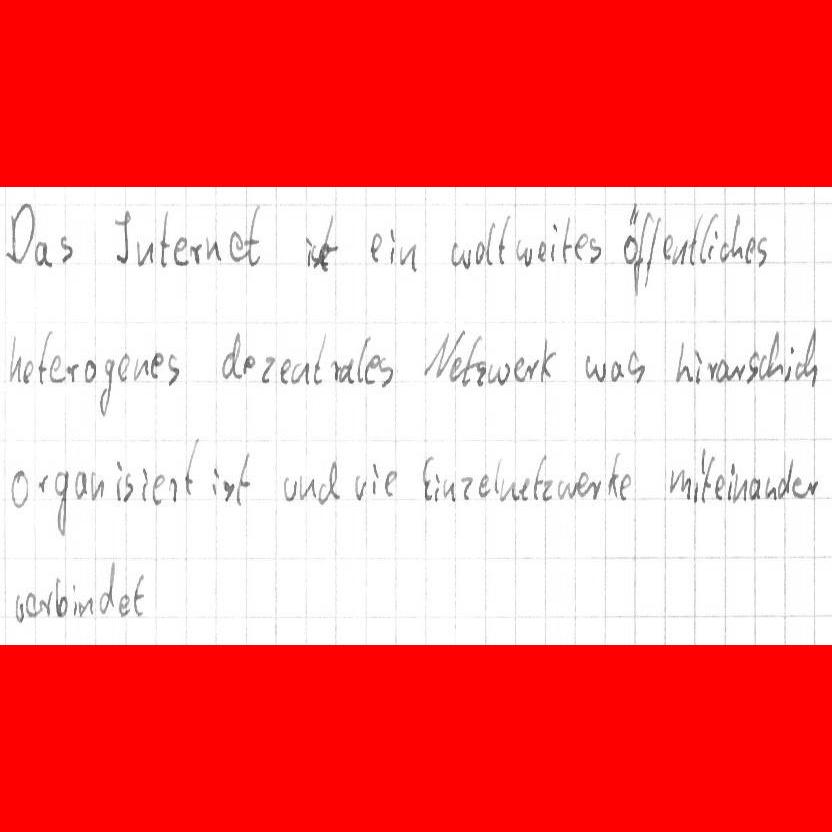 Das Internet ist ein weltweites öffentliches
heterogenes dezentrales Netzwerk was hirarschich
organisiert ist und vie Einzelnetzwerke miteinander
verbindet